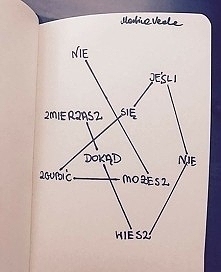 NIE
JEŚLI
SIĘ
ZMIERZASZ
DOKĄD
NIE
ZGUBIĆ
MOŻESZ
WIESZ